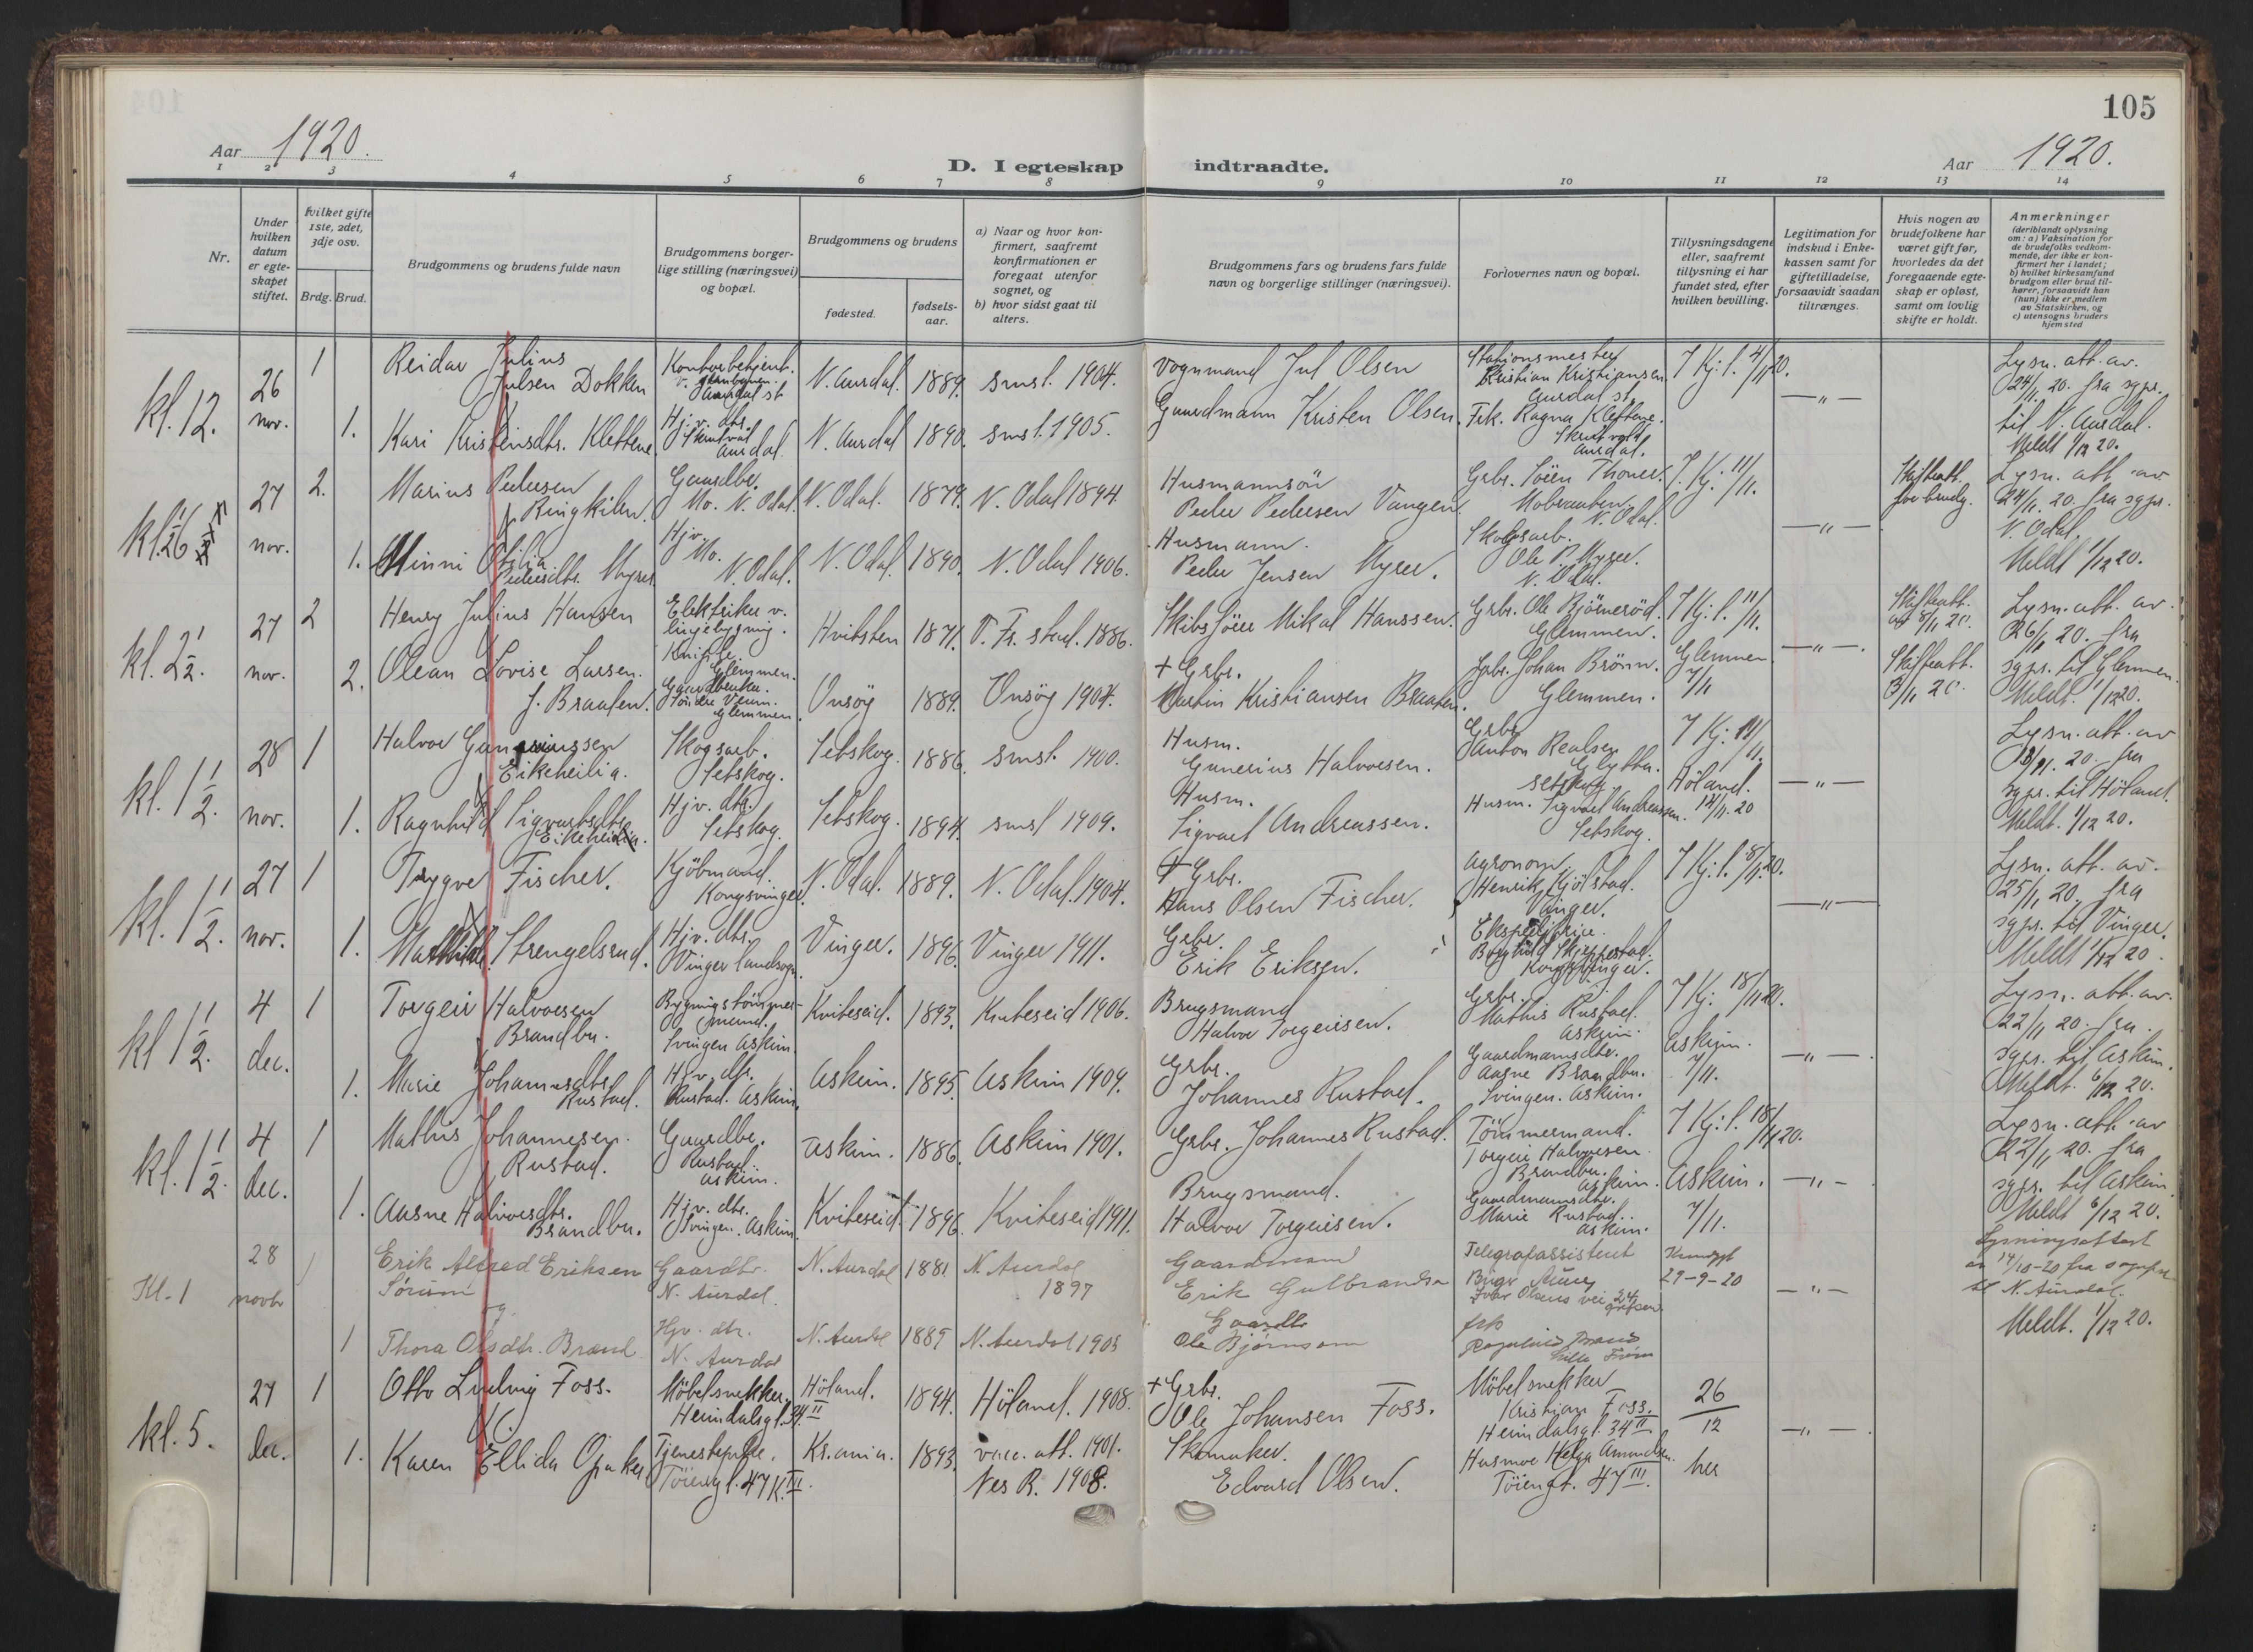 105
Aar 1920.
D. I egteskap indtraadte.
Aar 1920.
1 2 3 4 5 6 7 8 9 10 11 12 13 14
Nr.
Under hvilken datum er egte-skapet stiftet.
hvilket gifte 1ste, 2det, 3dje osv.
Brdg. Brud.
Brudgommens og brudens fulde navn
Brudgommens borger-lige stilling (næringsvei) og bopæl.
Brudgommens og brudens
fødested.
fødsels-aar.
a) Naar og hvor kon-firmert, saafremt konfirmationen er foregaat utenfor sognet, og
b) hvor sidst gaat til alters.
Brudgommens fars og brudens fars fulde navn og borgerlige stillinger (næringsvei).
Forlovernes navn og bopæl.
Tillysningsdagene eller, saafremt tillysning ei har fundet sted, efter hvilken bevilling.
Legitimation for indskud i Enke-kassen samt for giftetilladelse, forsaavidt saadan tiltrænges.
Hvis nogen av brudefolkene har været gift før, hvorledes da det foregaaende egte-skap er opløst, samt om lovlig skifte er holdt.
Anmerkninger (deriblandt oplysning om: a) Vaksination for de brudefolks vedkom-mende, der ikke er kon-firmert her i landet; b) hvilket kirkesamfund brudgom eller brud til-hører, forsaavidt han (hun) ikke er medlem av Statskirken, og c) utensogns bruders hjemsted
kl. 12. 26 nov. 1
Reidar Julius Julsen Dokken
Kontorbetjent. Aurdal st
N. Aurdal. 1889. smst. 1904.
Vognmand Jul Olsen
Stationsmester Kristian Kristiansen Aurdal st.
7 Kj. l. 4/11 20.
— " —
Lysn. att. av. 24/11 20. fra sgpr. til N. Aurdal. Meldt 1/12 20.
1. Kari Kristensdtr. Klettene
Hj.v. dtr. Skrutvol Aurdal.
N. Aurdal 1890. smst. 1905.
Gaardmann Kristen Olsen.
Frk. Ragna Klettene. Skrutvold Aurdal.
27 nov. 2.
Marius Pedersen Ringkilen.
Gaardbr. Mo. N. Odal.
N. Odal. 1879. N. Odal 1894.
Husmannsön Peder Pedersen Vangen.
Grbr. Søren Thoner. N. Odal.
7. Kj. 11/11.
— " —
Skifteatt. for brudg.
Lysn. att. av 24/11 20. fra sgpr. N. Odal. Meldt 1/12 20.
1. Minni Otilia Pedersdtr. Myrer
Hjv. Mo. N. Odal.
N. Odal. 1890. N. Odal 1906.
Husmann. Peder Jensen Myrer.
Skogsarb. Ole P. Myrer. N. Odal.
kl. 2 1/2. 27 nov. 2
Henry Julius Hansen
Elektriker v. linjebygning. Kniple Glemmen.
Hvitsten 1871. V. Fr. stad. 1886.
Skibsförer Mikal Hanssen.
Grbr. Ole Björneröd. Glemmen.
7 Kj. l. 11/11. Glemmen 7/11
— " —
Skifteatt. av 8/11 20.
Lysn. att. av 26/11 20. fra sgpr. til Glemmen. Meldt. 1/12 20.
2. Olean Lovise Larsen. f. Braaten.
Glemmen.
Onsöy 1889. Onsöy 1904.
+ Grbr. Martin Kristiansen Braaten.
Grbr. Johan Brönn. Glemmen.
Skifteatt. 3/11 20.
kl. 1 1/2. 28 nov. 1
Halvor Gunneriussen Eikeheilia.
Skogsarb. Setskog.
Setskog. 1886. smst. 1900.
Husm. Gunerius Halvorsen.
Grbr. Anton Setskog
7 Kj. 14/11. Höland. 14/11. 20
— " —
Lysn. att. av fra sgpr. til Höland. Meldt. 1/12 20.
1. Ragnhild Sigvartsdtr. Eikeheilia.
Hjv. dtr. Setskog.
Setskog. 1894. smst 1909.
Husm. Sigvart Andreassen.
Husm. Sigvart Andreassen. Setskog.
kl. 1 1/2. 27 nov. 1
Trygve Fischer.
Kjöbmand. Kongsvinger.
N. Odal. 1889. N. Odal. 1904.
+ Grbr. Hans Olsen Fischer.
Agronom. Henrik Kjölstad. Vinger.
7 Kj. l. 18/11 20.
— " —
Lysn. att. av. 25/11 20. fra sgpr. til Vinger. Meldt 1/12 20.
1. Mathilde Strengelsrud.
Hjv. dtr. Vinger landsogn.
Vinger. 1896. Vinger 1911.
Grbr. Erik Eriksen.
Borghild Skjeppestad. Kongsvinger.
kl 1 1/2. 4 dec. 1
Torgeir Halvorsen Brandbu.
Bygningstömmermand. Svingen Askim.
Kviteseid. 1893. Kviteseid 1906.
Brugsmand Halvor Torgeirsen.
Grbr. Mathis Rustad. Askim.
7 Kj. 18/11 20. Askim. 7/11.
— " —
Lysn. att. av. 22/11 20. fra. sgpr. til Askim. Meldt. 6/12 20.
1. Marie Johannesdtr. Rustad.
Hjv. dtr. Rustad. Askim.
Askim. 1895. Askim 1909.
Grbr. Johannes Rustad.
Gaardmannsdtr. Aasne Brandbu. Svingen. Askim.
kl. 1 1/2. 4 dec. 1
Mathis Johannesen. Rustad.
Gaardbr. Rustad. Askim.
Askim. 1886. Askim 1901.
Grbr. Johannes Rustad.
Tömmermand. Torgeir Halvorsen Brandbu. Askim.
7 Kj. l. 18/11 20. Askim. 7/11.
— " —
Lysn. att. av 22/11 20. fra sgpr. til Askim. Meldt 6/12 20.
1. Aasne Halvorsdtr. Brandbu.
Hjv. dtr. Svingen. Askim.
Kviteseid. 1896. Kviteseid 1911.
Brugsmand. Halvor Torgeirsen.
Gaardmannsdtr. Marie Rustad. Askim.
Kl. 1 28 novbr 1
Erik Alfred Eriksen Sørum og
Gaardbr. N. Aurdal.
N. Aurdal 1881 N. Aurdal 1897
Gaardmand Erik Gulbrandsen
Telegrafassistent Ivar Olsens vei 24
29-9-20
— " —
Lysningsattest av 14/10-20 fra sognepr. til N. Aurdal. Meldt. 1/12 20.
1 Thora Olsdtr. Brand
Hjv. dtr. N. Aurdal
N. Aurdal 1885 N. Aurdal 1903
Gaardbr Ole Bjørnson
frk
kl. 5. 27 dec. 1
Otto Ludvig Foss.
Möbelsnekker. Heimdalsgt. 34 II
Höland. 1894. Höland. 1908.
+ Grbr. Ole Johansen Foss.
Möbelsnekker Kristian Foss. Heimdalsgt. 34 II
26/12 her
— " —
1. Karen Ellida Opaker
Tjenestepike. Töiengt. 47 K. III.
Kr.ania. 1893. vacc. att. 1901. Nes R. 1908.
Skomaker. Edvard Olsen.
Husmor Helga Amundsen. Töiengt. 47 III.